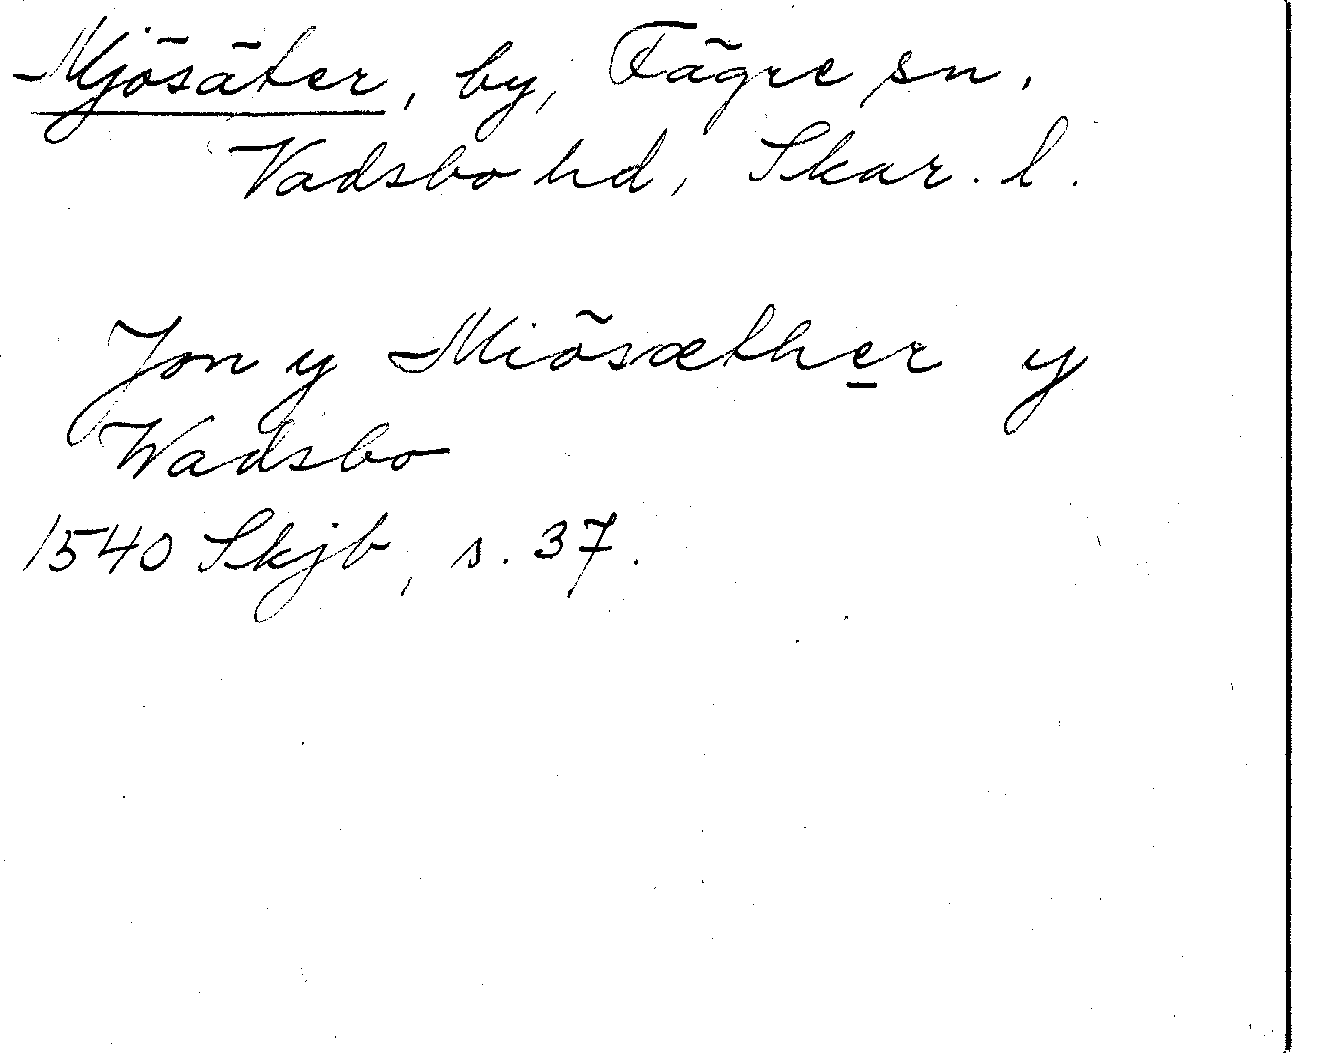 Mjösäter, by, Fägre sn.
Vadsbo hd, Skar. l.
Jon y Miösæther y
Wadsbo
1540 Skjb, s. 37.